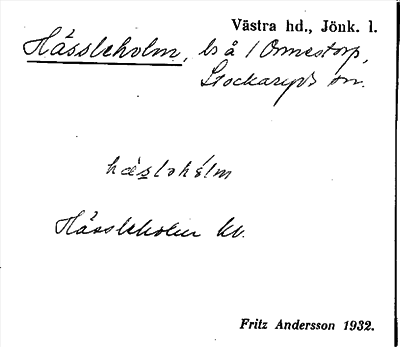 Västra hd., Jönk. l.
Hässleholm, ls å 1 Ormestorp,
Stockaryds sn.
hæ̀slɘhólm
Hässleholm
Fritz Andersson 1932.